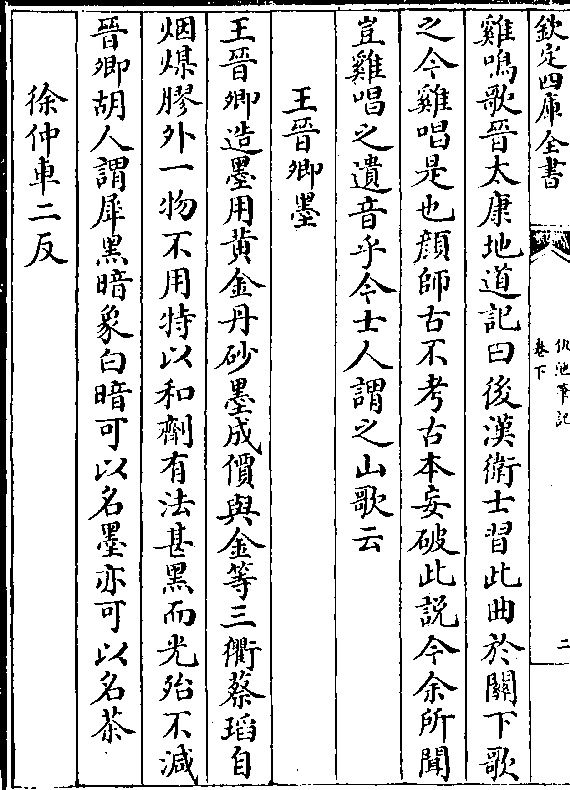 欽定四庫全書
仇池筆記
卷下
二
雞鳴歌晉太康地道記曰後漢衛士習此曲於闕下歌
之今雞唱是也顔師古不考古本妄破此説今余所聞
豈雞唱之遺音乎今士人謂之山歌云
王晉卿墨
王晉卿造墨用黄金丹砂墨成價與金等三衢蔡瑫自
烟煤膠外一物不用特以和劑有法甚黑而光殆不減
晉卿胡人謂犀黑暗象白暗可以名墨亦可以名茶
徐仲車二反